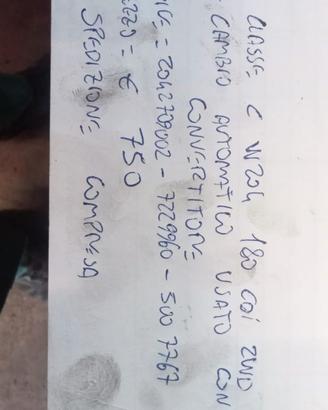 CLASSE C W204 180 CDI 2WD
CAMBIO AUTOMATICO USATO CON
CONVERTITORE
ICE = 2042709002 - 7229960 - 500 7767
EZZO = € 750
SPEDIZIONE COMPRESA